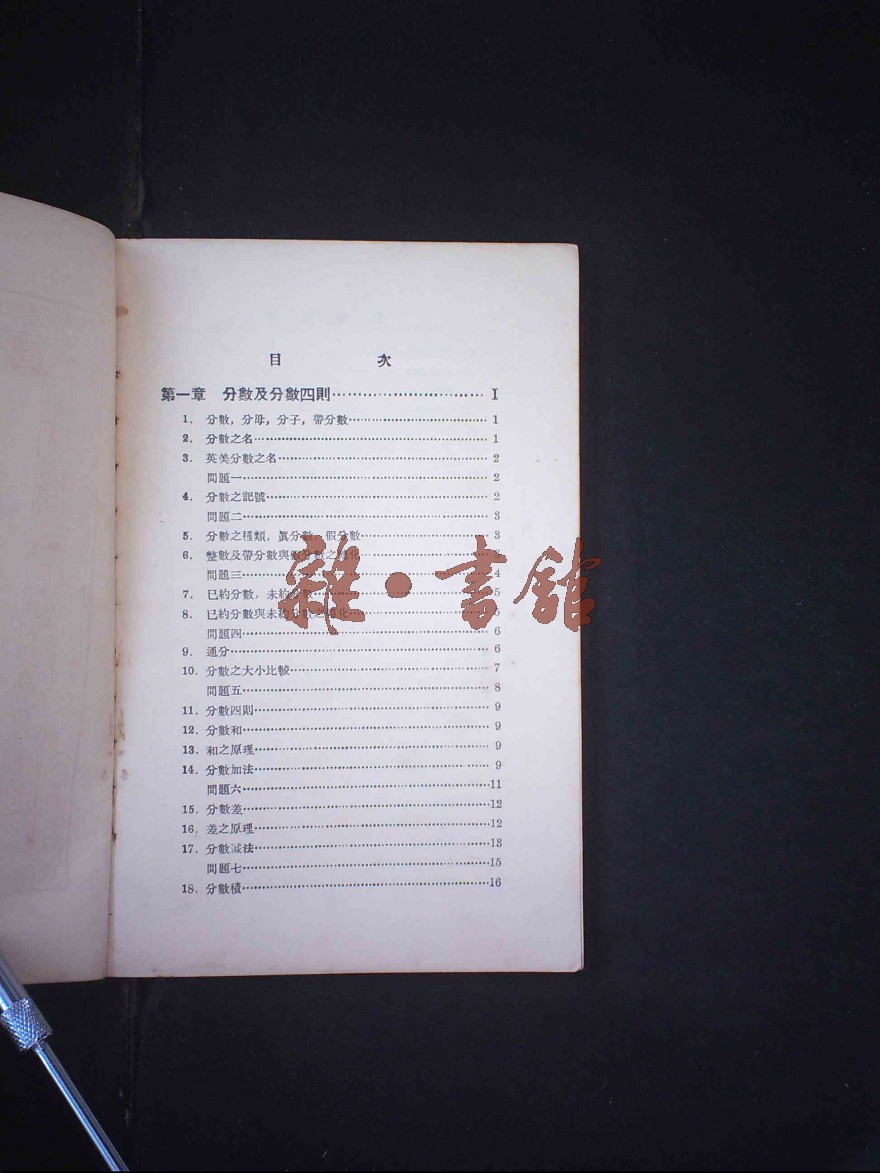 目 次
第一章 分數及分數四則 1
1. 分數，分母，分子，帶分數 1
2. 分數之名 1
3. 英美分數之名 2
問題一 2
4. 分數之記號 2
問題二 3
5. 分數之種類，眞分數，假分數 3
6. 整數及帶分數與假分數之變化 3
問題三 4
7. 已約分數，未約分數 5
8. 已約分數與未約分數之變化 5
問題四 6
9. 通分 6
10. 分數之大小比較 7
問題五 8
11. 分數四則 9
12. 分數和 9
13. 和之原理 9
14. 分數加法 9
問題六 11
15. 分數差 12
16. 差之原理 12
17. 分數減法 13
問題七 15
18. 分數積 16
雜·書館